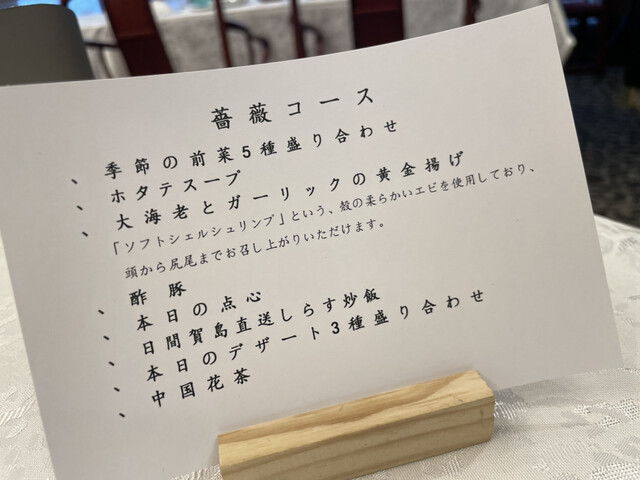 薔薇コース
、季節の前菜5種盛り合わせ
、ホタテスープ
、大海老とガーリックの黄金揚げ
「ソフトシェルシュリンプ」という、殻の柔らかいエビを使用しており、
頭から尻尾までお召し上がりいただけます。
、酢豚
、本日の点心
、日間賀島直送しらす炒飯
、本日のデザート3種盛り合わせ
、中国花茶